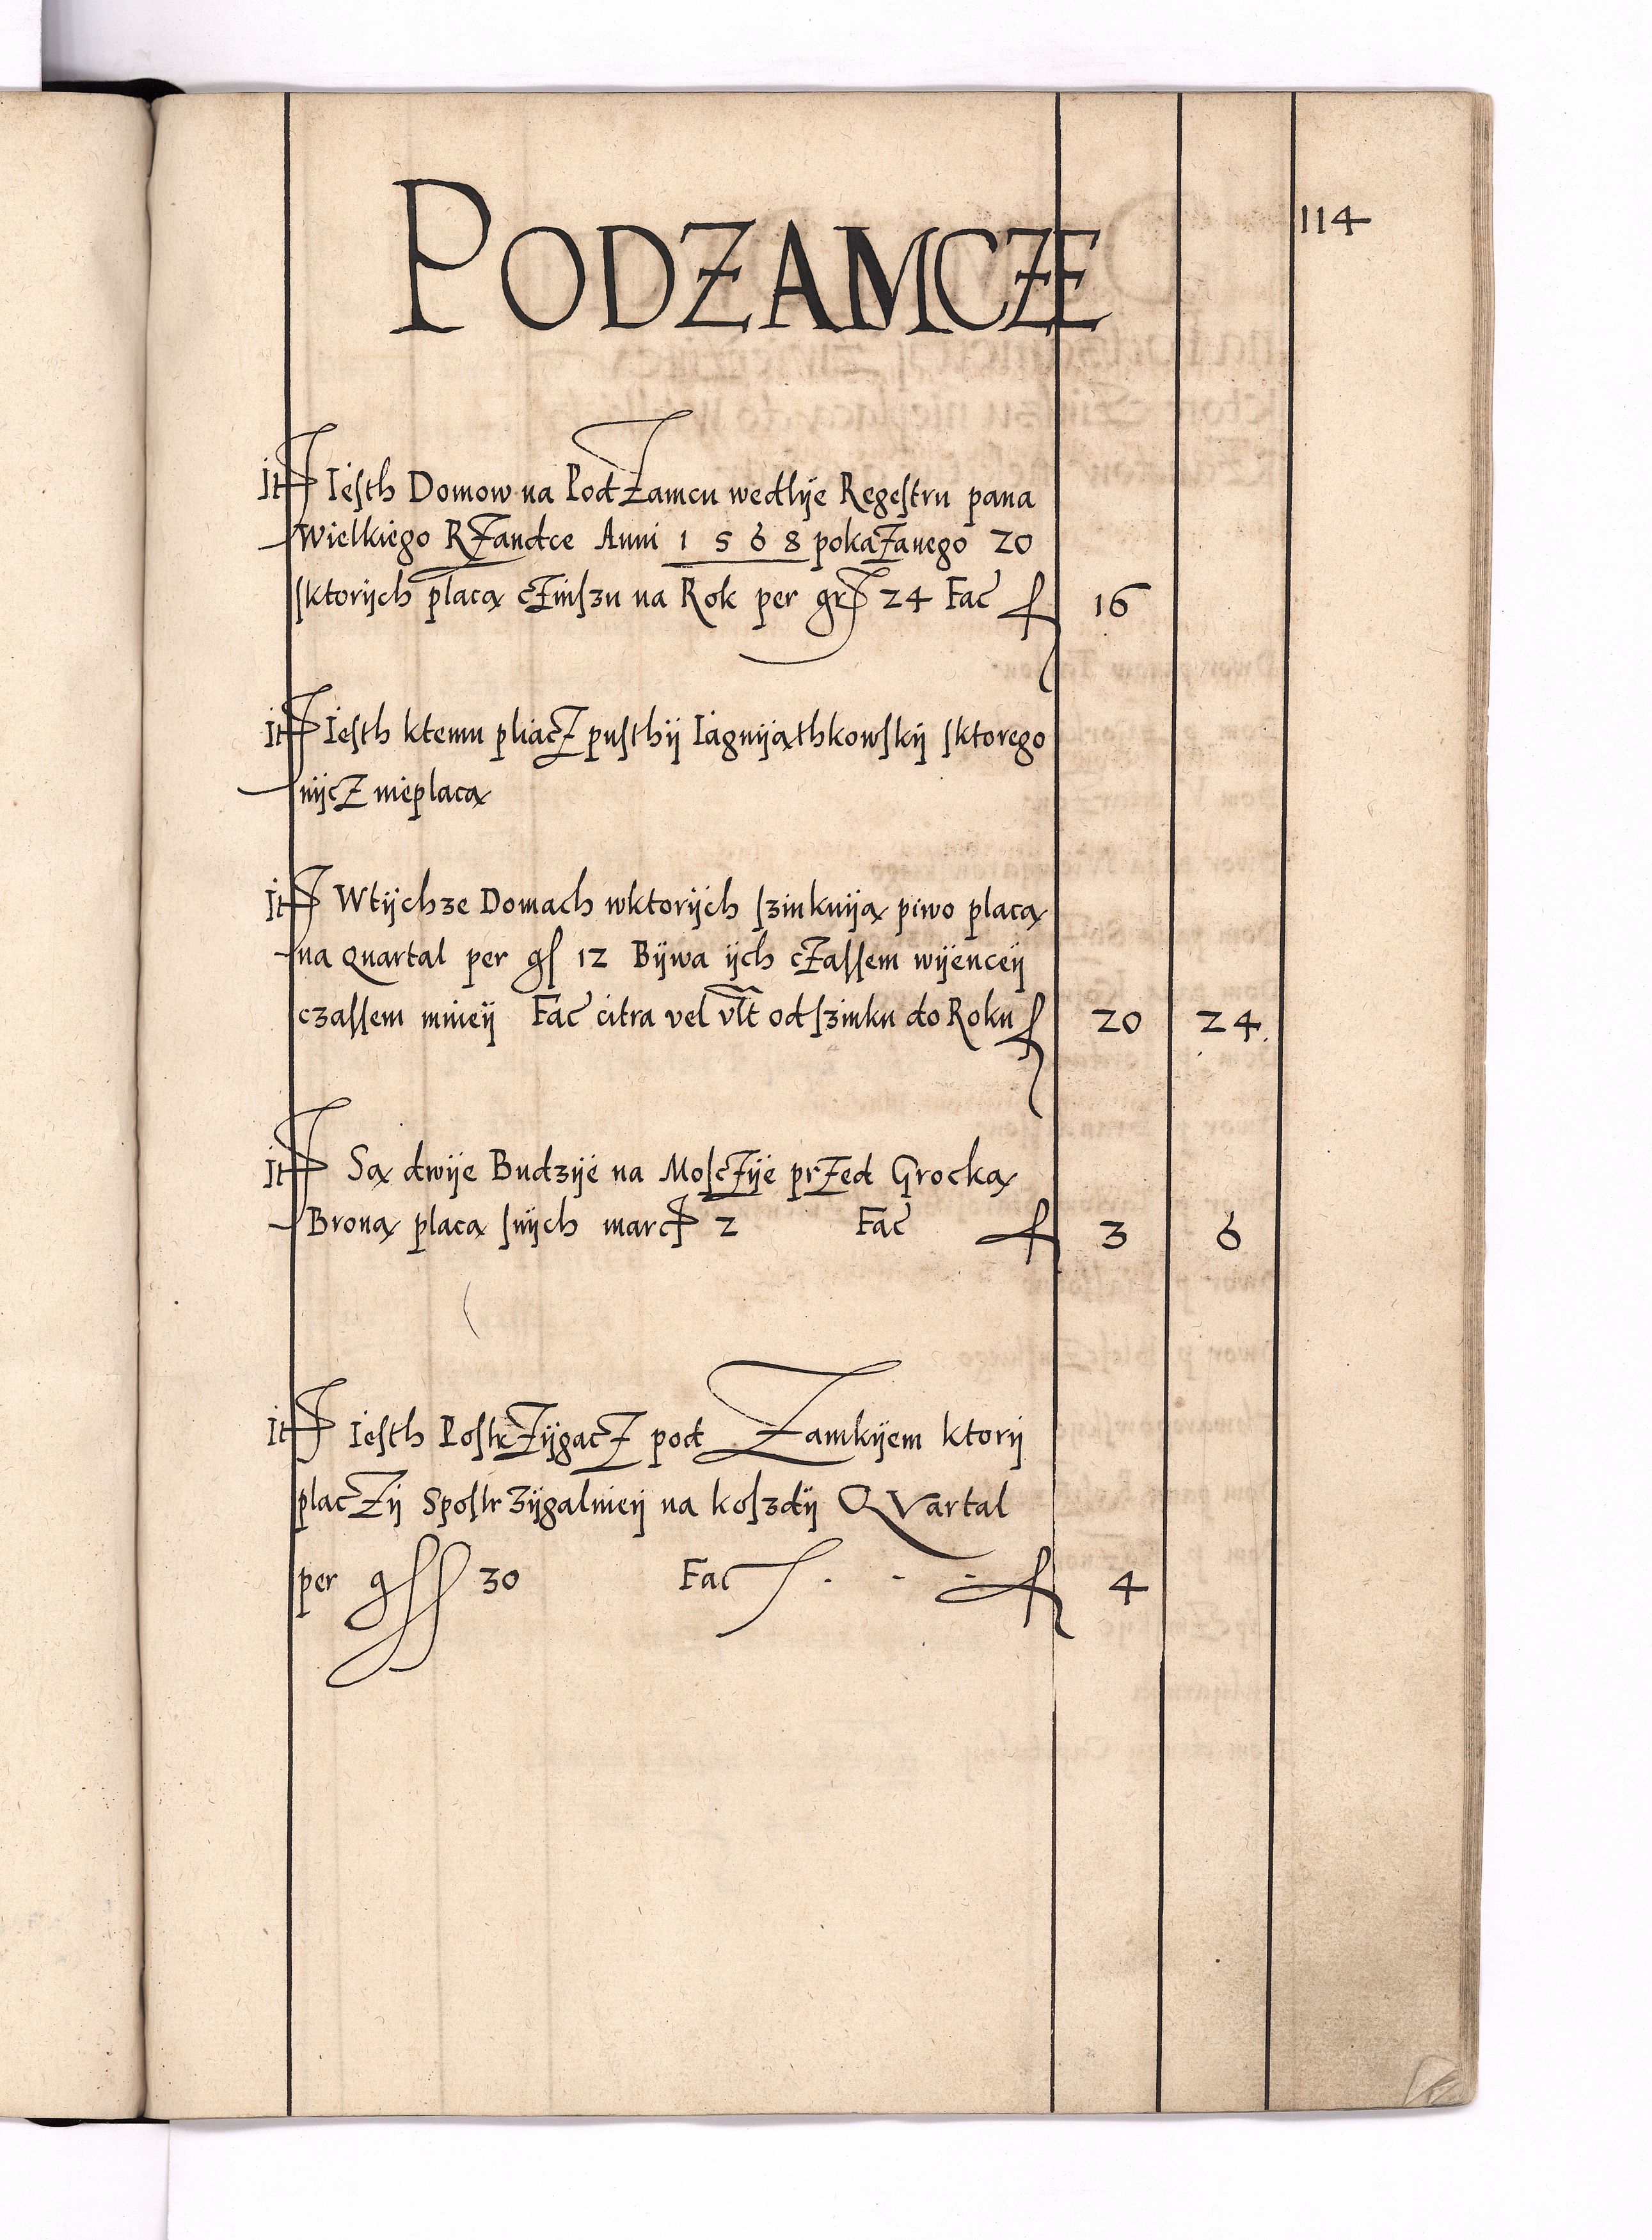 114
PODZAMCZE
It Iesth Domow na PodZamcu wedlÿe Regestru pana
Wielkiego RZandce Anni 1568 pokaZanego 20
sktorÿch placą cZinszu na Rok per gr 24 Fac f 16
It Iesth ktemu pliacZ pusthÿ Iagnÿąthkowskÿ sktorego
nÿcZ nieplacą
It Wtÿchze Domach wktorÿch szinkuÿą piwo placą
na Quartal per gs 12 Bÿwa ÿch cZassem wÿenceÿ
czassem mnieÿ Fac citra vel vlt od szinku do Roku f 20 24
It Są dwÿe Budzÿe na MoscZÿe prZed Grocką
Broną placą snÿch marc 2 Fac f 3 6
It Iesth PostrZÿgacZ pod Zamkÿem ktorÿ
placZÿ spostrzÿgalnieÿ na koszdÿ QVartal
per gss 30 Fac f 4